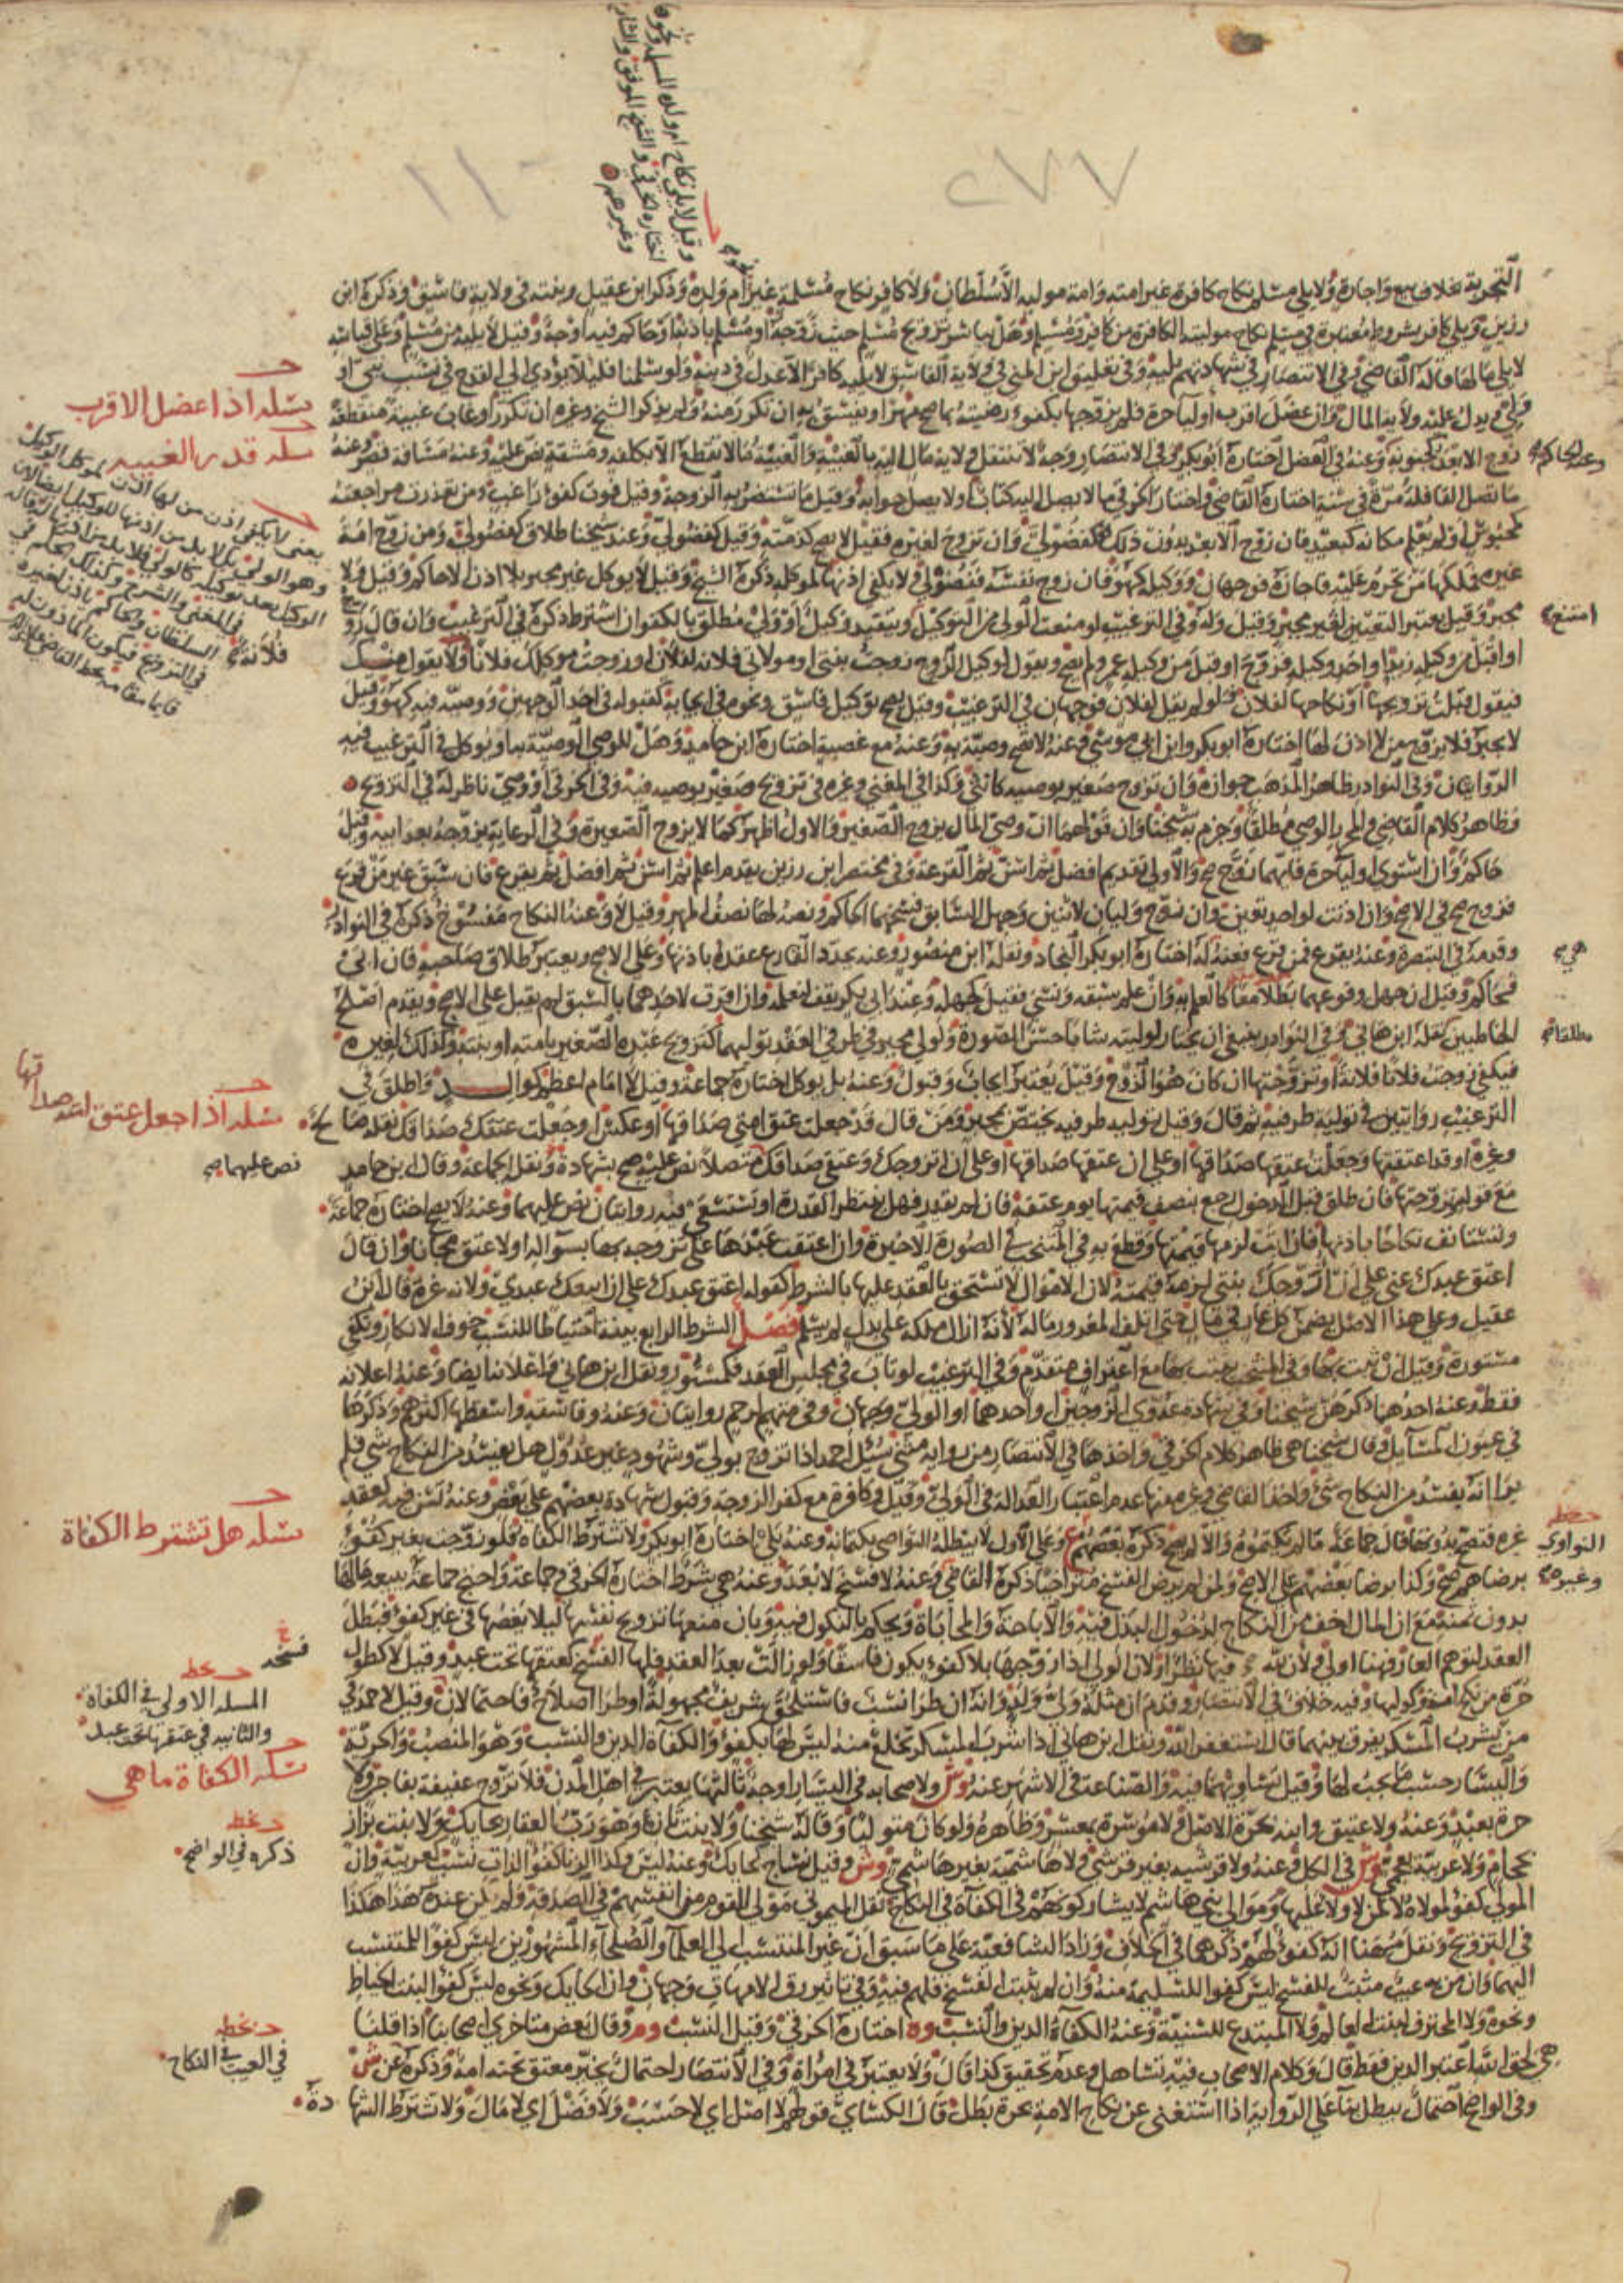 ٢٧٧
وقيل لا يلي نكاح ام ولده المسلمة ونحوها
اختاره الخرقي و الشيخ الموفق والشارح
وغيرهم
التجربة بخلاف بيع واجارة ولا يلي مسلم نكاح كافرة غير امته وامة موليه الا سلطان ولا كافر نكاح مسلمة غير ام ولده وذكر ابن عقيل وبنته في ولاية فاسق وذكره ابن
رزين ويلي كافر بشروط معتبرة في مسلم نكاح موليته الكافرة من كافر ومسلم وهل يباشر تزويج مسلم حيث زوجه او مسلم باذنه او حاكم فيه اوجه وقيل لا يليه من مسلم وعلى قياسه
لا يلي مالها قاله القاضي وفي الانتصار في شهادتهم يليه وفي تعليق ابن المني في ولاية الفاسق لا يليه كافر الا عدل في دينه ولو سلمنا فلئلا يؤدي الى القدح في نسب نبي او
ولي ويدل عليه ولاية المال وان عضل اقرب اولياء حرة فلم يزوجها بكفوء رضيته بما صح مهرا ويفسق به ان تكرر منه ولم يذكر الشيخ وغيره ان تكرر او غاب غيبة منقطعة
زوج الابعد كجنونه وعنه في العضل اختاره ابو بكر وفي الانتصار وجه لا تنتقل ولاية مال اليه بالغيبة والغيبة ما لا تقطع الا بكلفة ومشقة نص عليه وعنه مسافة قصر وعنه
ما تصل القافلة مرة في سنة اختاره القاضي واختار الخرقي ما لا يصل اليه كتاب او لا يصل جوابه وقيل ما تستضر به الزوجة وقيل فوت كفوء راغب ومن تعذرت مراجعته
كمحبوس او لم يعلم مكانه كبعيد فان زوج الابعد بدون ذلك كفضولي وان تزوج لغيره فقيل لا يصح كذمته وقيل كفضولي وعند شيخنا طلاق كفضولي ومن زوج امة
غيره فملكها من تحرم عليه فاجازه فوجهان ووكيله كهو فان زوج نفسه ففضولي ولا يكفي اذنها لموكله ذكره الشيخ وقيل لا يوكل غير مجبر بلا اذن الا حاكم وقيل ولا
مجبر وقيل يعتبر التعيين لغير مجبر وقيل وله وفي الترغيب لو منعت الولي من التوكيل ويتقيد وكيل او ولي مطلق بالكفو ان اشترط ذكره في الترغيب وان قال زوج
او اقبل من وكيله زيد او احد وكيليه فزوج او قبل من وكيله عمرو لم يصح ويقول لوكيل الزوج زوجت بنتي او موليتي فلانة لفلان او زوجت موكلك فلانا ولا يقول منك
فيقول قبلت تزويجها او نكاحها لفلان فلو لم يقل لفلان فوجهان في الترغيب وقيل يصح توكيل فاسق ونحوه في ايجابه كقبوله في احد الوجهين ووصيه فيه كهو وقيل
لا يجبر فلا يزوج من لا اذن لها اختاره ابو بكر وابن ابي موسى وعنه لا تصح وصية به وعنه مع عصبة اختاره ابن حامد وهل للوصي الوصية به او يوكل في الترغيب فيه
الروايتان وفي النوادر ظاهر المذهب جوازه وان تزوج صغير بوصية كانثى وكذا في المغني وغيره في تزويج صغير بوصية فيه وفي الخرقي او وصي ناظر له في التزويج
وظاهر كلام القاضي والمحرر للوصي مطلقا وجزم به شيخنا وان قولهما ان وصي المال يزوج الصغير والاول اظهر كما لا يزوج الصغيرة وفي الرعاية يزوجه بعد ابيه وقيل
حاكم وان استوى اولياء حرة فايهما زوج صح والاولى تقديم افضل ثم اسن ثم القرعة وفي مختصر ابن رزين يقدم اعلم ثم اسن ثم افضل ثم يقرع فان سبق غير من قرع
فزوج صح في الاصح وان اذنت لواحد تعين وان زوج وليان لاثنين وجهل السابق فسخهما الحاكم ونصه لها نصف المهر وقيل لا وعنه النكاح مفسوخ ذكره في النوادر
وقدمه في التبصرة وعنه يقرع فمن قرع فعنه له اختاره ابو بكر النجاد ونقله ابن منصور وعنه يجدد القارع عقده باذنها وعلى الاصح ويعتبر طلاق صاحبه فان ابى
فحاكم وقيل ان جهل وقوعهما بطلا معا كالعلم به وان علم سبقه ونسي فقيل كجهله وعند ابي بكر يقف لنعلمه وان اقرت لاحدهما بالسبق لم يقبل على الاصح ويقدم اصلح
الخاطبين نقله ابن هاني وفي النوادر ينبغي ان يختار لوليته شابا حسن الصورة ولولي مجبر في طرفي العقد توليهما كتزويج عبده الصغير بامته او بنته وكذلك لغيره
فيكفي زوجت فلانا فلانة او تزوجتها ان كان هو الزوج وقيل يعتبر ايجاب وقبول وعنه بل يوكل اختاره جماعة وقيل الا امام اعظم كوالد واطلق في
الترغيب روايتين في تولية طرفيه ثم قال وقيل توليه طرفيه يختص بمجبر ومن قال قد جعلت عتق امتي صداقها او عكس او جعلت عتقك صداقك نقله صالح
وغيره او قد اعتقتها وجعلت عتقها صداقها او على ان عتقها صداقها او على ان اتزوجك وعتقي صداقك متصلا نص عليه صح بشهادة ونقل الجماعة وقال ابن حامد
مع قوله وتزوجتها فان طلق قبل الدخول رجع بنصف قيمتها يوم عتقه فان لم تقدر فهل ينتظر القدرة او تستسعى فيه روايتان نص عليهما وعنه لا يصح اختاره جماعة
وتستانف نكاحا باذنها فان ابت لزمها قيمتها وقطع به في المنتخب في الصورة الاخيرة وان اعتقت عبدها على تزوجه بها بسؤاله او لا عتق مجانا وان قال
اعتق عبدك عني على ان ازوجك بنتي لزمه قيمته لان الاموال لا تستحق بالعقد عليها بالشرط كقوله اعتق عبدك على ان ابيعك عبدي ولانه غره قال ابن
عقيل وعلى هذا الاصل يضمن كل غار في مال حتى اتلف المغرور ماله لانه ازال ملكه على بدل لم يسلم فصل الشرط الرابع بينة احتياطا للنسب خوف الانكار وتكفي
مستورة وقيل ان ثبت بها وفي المنتخب يثبت بها مع اعتراف متقدم وفي الترغيب لو تاب في مجلس العقد فكمستور ونقل ابن هاني واعلانا ايضا وعنه اعلانه
فقط وعنه احدهما ذكرهن شيخنا وفي شهادة عدوي الزوجين او احدهما او الولي وجهان وفي متهم لرحم روايتان وعنه وفاسقة واسقطها اكثرهم وذكرها
في عيون المسائل وقال شيخنا هي ظاهر كلام الخرقي واخذها في الانتصار من رواية مثنى سئل احمد اذا تزوج بولي وشهود غير عدول هل يفسد من النكاح شي فلم
ير انه يفسد من النكاح شي واخذ القاضي وغيره منها عدم اعتبار العدالة في الولي وقيل وكافرة مع كفر الزوجة وقبول شهادة بعضهم على بعض وعنه تسن فيه كعقد
غيره فتصح بدونها قال جماعة ما لم يكتموه والا لم يصح ذكره بعضهم ع وعلى الاول لا يبطله التواصي بكتمانه وعنه بلى اختاره ابو بكر ولا تشترط الكفاءة فلو زوجت بغير كفوء
برضاهم صح وكذا برضا بعضهم على الاصح ولمن لم يرض الفسخ متراخيا ذكره القاضي وعنه لا فسخ لابعد وعنه هي شرط اختاره الخرقي وجماعة واحتج جماعة ببيعه مالها
بدون ثمنه مع ان المال اخف من النكاح لدخول البدل فيه والاباحة والمحاباة ويحكم بالنكول فيه وبان منعها تزويج نفسها لئلا تضعها في غير كفوء فبطل
العقد لتوهم العار فهنا اولى ولان لله فيها نظرا ولان الولي اذا زوجها بلا كفوء يكون فاسقا ولو زالت بعد العقد فلها الفسخ كعتقها تحت عبد وقيل لا كطول
حرة من نكح امة وكوليها وفيه خلاف في الانتصار وقدم ان مثله ولي وولد وانه ان طرا نسب فاستلحق شريف مجهولة او طرا صلاح فاحتمالان وقيل لاحمد في
من يشرب المسكر يفرق بينهما قال استغفر الله ونقل ابن هاني اذا شرب المسكر تخلع منه ليس لها بكفوء والكفاءة الدين والنسب وهو المنصب والحرية
واليسار حسب ما يجب لها وقيل تساويهما فيه والصناعة في الاشهر عنه وش ولاصحابه في اليسار اوجه ثالثها يعتبر في اهل المدن فلا تزوج عفيفة بفاجر ولا
حرة بعبد وعنه ولا عتيق وابنه بحرة الاصل ولا موسرة بمعسر وظاهره ولو كان متوليا وقاله شيخنا ولا بنت تانئ وهو رب العقار بحائك ولا بنت بزاز
بحجام ولا عربية بعجمي وش في الكل وعنه ولا قرشية بغير قرشي ولا هاشمية بغير هاشمي وش وقيل نساج كحائك وعنه ليس ولد الزنا كفوا لذات نسب كعربية وان
المولى كفو لمولاه لا لمن اولاد عليها وموالي بني هاشم لا يشاركونهم في الكفاءة في النكاح نقل الميموني مولى القوم من انفسهم في الصدقة ولم يكن عنده هذا هكذا
في التزويج ونقل مهنا انه كفوء لهم ذكرهما في الخلاف وزاد الشافعية على ما سبق ان غير المنتسب الى العلماء والصلحاء المشهورين ليس كفوا للمنتسب
اليهما وان من به عيب مثبت للفسخ ليس كفوا للسليمة منه وان لم يثبت الفسخ فلهم فيه وفي تاثير رق الامهات وجهان وان الحائك ونحوه ليس كفوا لبنت الخياط
ونحوه ولا المحترف لبنت العالم ولا المبتدع للسنية وعنه الكفاءة الدين والنسب وه اختاره الخرقي وقيل النسب وم وقال بعض متاخري اصحابنا اذا قلنا
هي لحق الله اعتبر الدين فقط قال وكلام الاصحاب فيه تساهل وعدم تحقيق كذا قال ولا يعتبر في امراة وفي الانتصار احتمال يخير معتق تحته امة وذكره عن ش
وفي الواضح احتمال يبطل بناء على الرواية اذا استغنى عن نكاح الامة بحرة بطل قال الكسائي قولهم لا اصل اي لا حسب ولا فضل اي لا مال ولا تشترط الشهادة
مسئلة اذا عضل الاقرب
مسئلة قدر الغيبة
يعني لا يكفي اذن من لها اذن لموكل الوكيل
وهو الولي بل لا بد من اذنها للوكيل
وعنه الحاكم
امتنع
هي
مطلقا
مسئلة اذا جعل عتق امته صداقها
نص عليهما صح
النواوي
وغيره
مسئلة هل تشترط الكفاءة
المسئلة الاولى في الكفاءة
والثانية في عتقها تحت عبد
مسئلة الكفاءة ما هي
ذكره في الواضح
بخطه
في العيب في النكاح